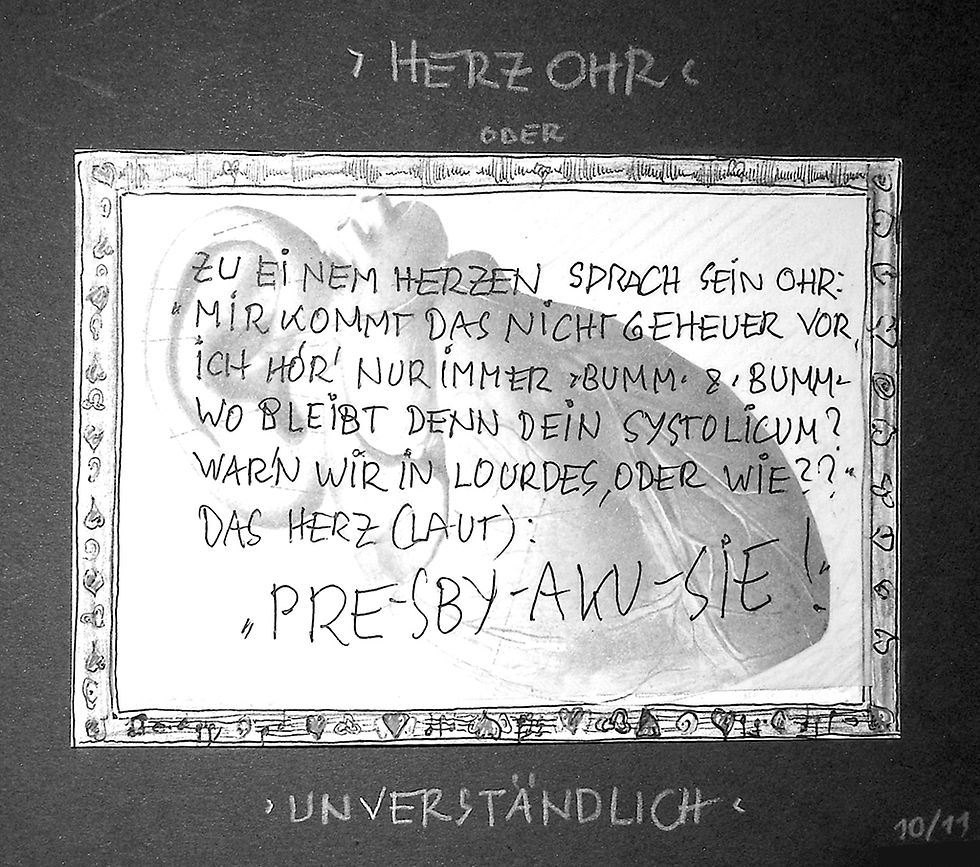 › HERZ OHR ‹
ODER
ZU EINEM HERZEN SPRACH SEIN OHR:
"MIR KOMMT DAS NICHT GEHEUER VOR,
ICH HÖR' NUR IMMER ›BUMM‹ & ›BUMM‹
WO BLEIBT DENN DEIN SYSTOLICUM?
WAR'N WIR IN LOURDES, ODER WIE??"
DAS HERZ (LAUT):
„PRE-SBY-AKU-SIE!"
› UNVERSTÄNDLICH ‹
10/11